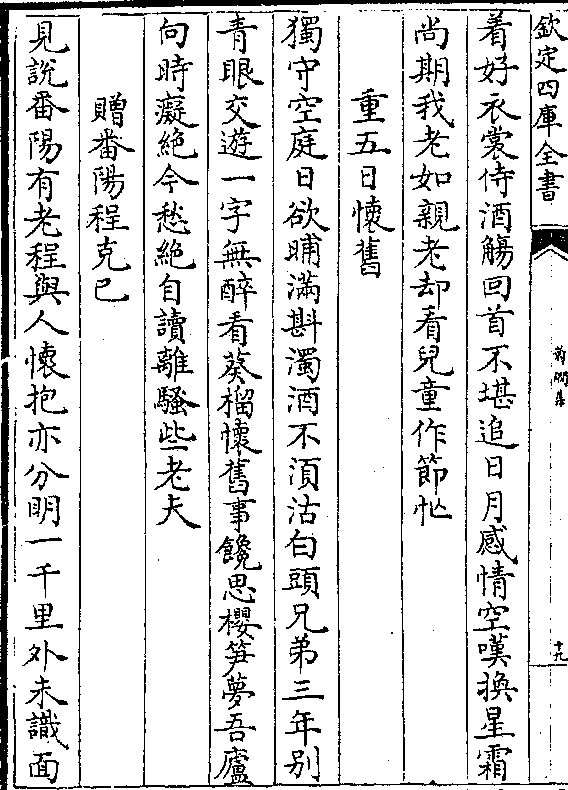 欽定四庫全書
菊磵集
十九
着好衣裳侍酒觴回首不堪追日月感情空嘆換星霜
尚期我老如親老却看兒童作節忙
重五日懷舊
獨守空庭日欲晡滿斟濁酒不湏沽白頭兄弟三年别
青眼交遊一字無醉看葵榴懷舊事饞思櫻笋夢吾廬
向時癡絶今愁絶自讀離騷些老夫
贈番陽程克己
見說番陽有老程與人懷抱亦分明一千里外未識面